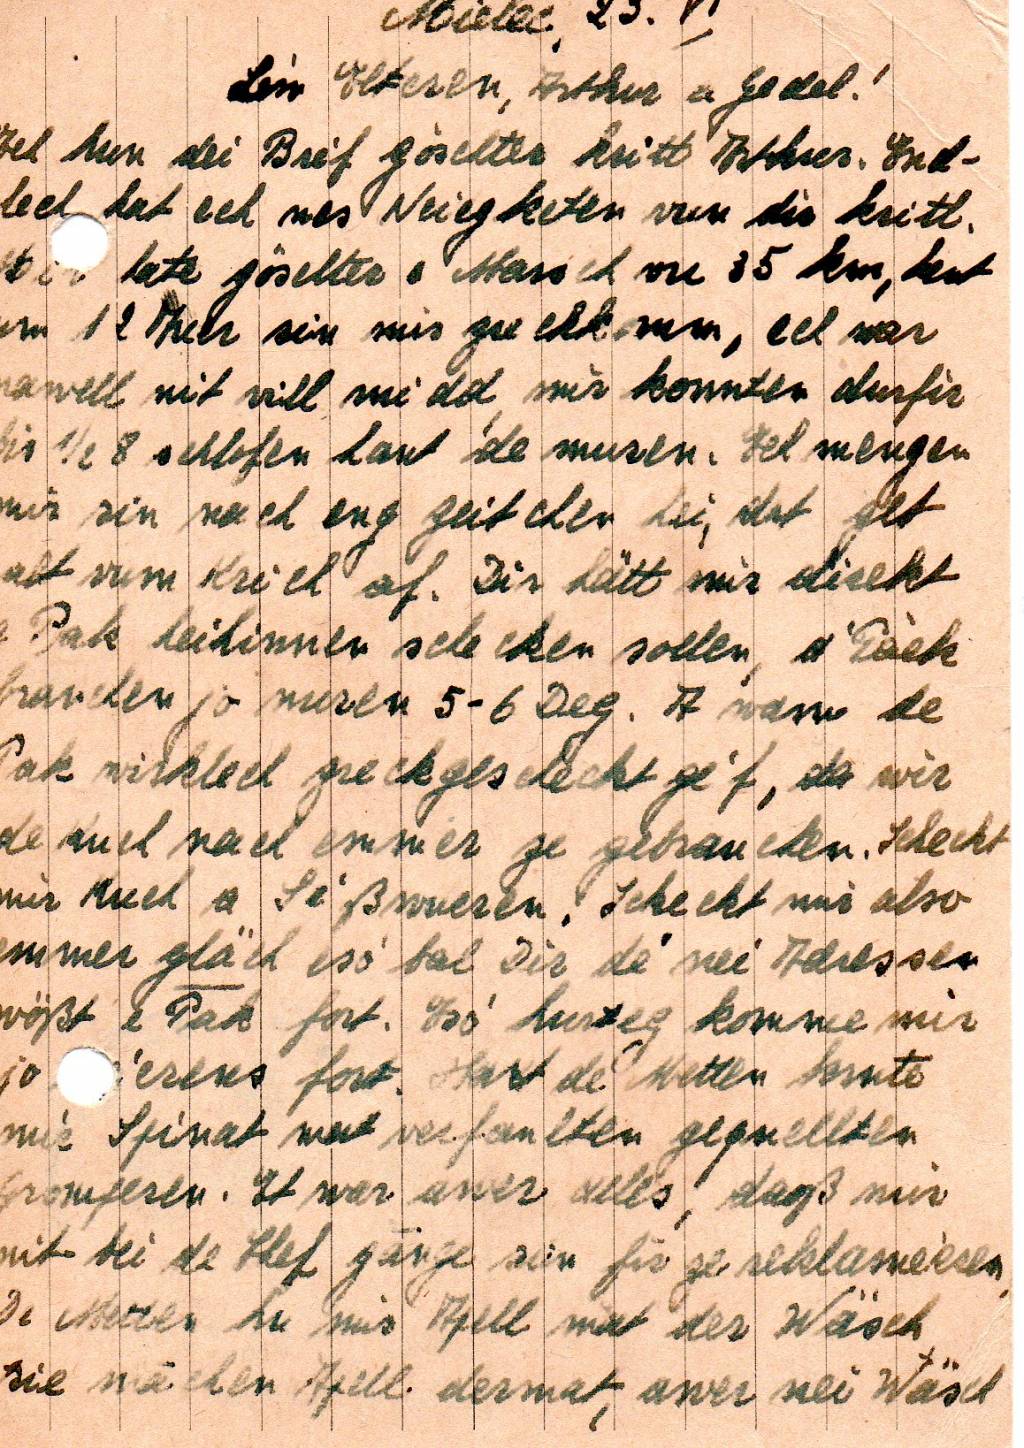 Mielec, 23. VI
Léw Elteren, Arthur a Jedel!
Ech hun dei Bréf göschter kritt Arthur. End-
lech hat ech nes Neiegketen vun dir kritt.
hate göschter e Marsch vu 35 km, haut
um 12 Auer sin mir zreckkomm, ech war
nawell nit vill midd, mir konnten durfir
bis 1/2 8 schlofen haut de muren. Ech mengen
mir sin nach eng Zeitchen hei, dat get
alt vum Krich of. Dir hätt mir direkt
e Pak heihinnen schecken sollen, d'Päck
brauchen jo nuren 5-6 Deg. A wann de
Pak wirklech zreckgescheckt gef, da wir
de Kuch nach emmer ze gebrauchen. Scheckt
mir Kuch a Séßwueren! Scheckt mir also
emmer gläch esó bal Dir dé nei Adressen
wößt e Pak fort. Esó hurteg komme mir
jo fort. Haut dé Metten hunte
mir Spinat mat verfaulten gequellten
Gromperen. Et war awer alles, dagß mir
nit bei de Chef gange sin fir ze reklameieren,
De Metten hu mir Apell mat der Wäsch
Sie mächen Apell dermat, awer nei Wäsch